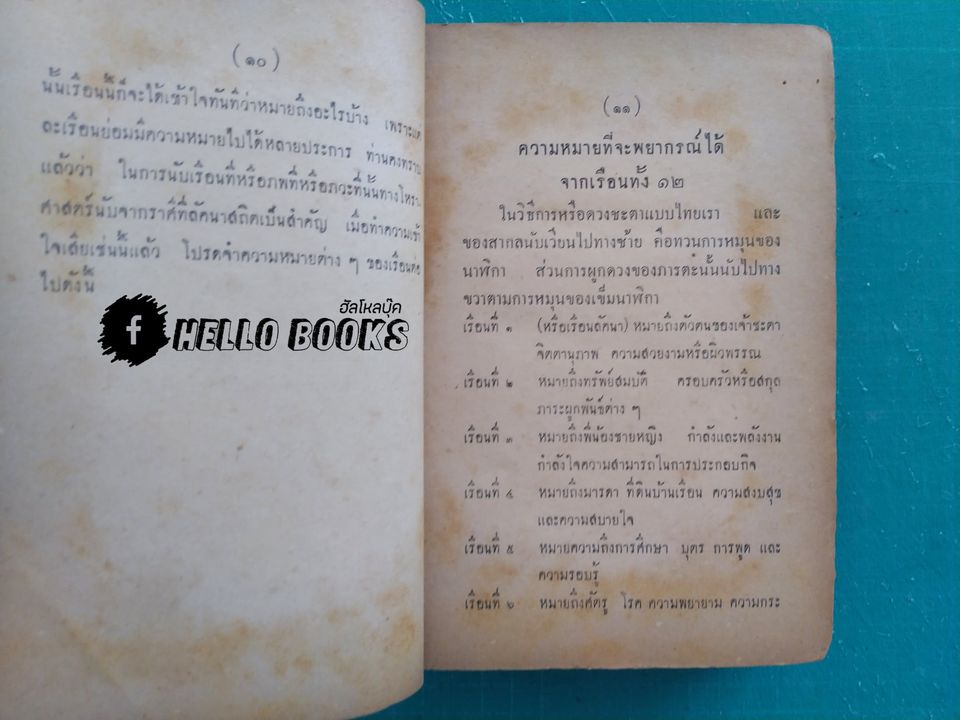 (๑๐)
นั้นเรือนนี้ก็จะได้เข้าใจทันทีว่าหมายถึงอะไรบ้าง เพราะแต่
ละเรือนย่อมมีความหมายไปได้หลายประการ ท่านคงทราบ
แล้วว่า ในการนับเรือนที่หรือภพที่หรือภวะที่นั้นทางโหรา
ศาสตร์นับจากราศีที่ลัคนาสถิตเป็นสำคัญ เมื่อทำความเข้า
ใจเสียเช่นนี้แล้ว โปรดจำความหมายต่าง ๆ ของเรือนต่อ
ไปดังนี้
ฮัลโหลบุ๊ค
f HELLO BOOKS
(๑๑)
ความหมายที่จะพยากรณ์ได้
จากเรือนทั้ง ๑๒
ในวิธีการหรือดวงชะตาแบบไทยเรา และ
ของสากลนับเวียนไปทางซ้าย คือทวนการหมุนของ
นาฬิกา ส่วนการผูกดวงของภารตะนั้นนับไปทาง
ขวาตามการหมุนของเข็มนาฬิกา
เรือนที่ ๑ (หรือเรือนลัคนา) หมายถึงตัวตนของเจ้าชะตา
จิตตานุภาพ ความสวยงามหรือผิวพรรณ
เรือนที่ ๒ หมายถึงทรัพย์สมบัติ ครอบครัวหรือสกุล
ภาระผูกพันธ์ต่าง ๆ
เรือนที่ ๓ หมายถึงพี่น้องชายหญิง กำลังและพลังงาน
กำลังใจความสามารถในการประกอบกิจ
เรือนที่ ๔ หมายถึงมารดา ที่ดินบ้านเรือน ความสงบสุข
และความสบายใจ
เรือนที่ ๕ หมายความถึงการศึกษา บุตร การพูด และ
ความรอบรู้
เรือนที่ ๖ หมายถึงศัตรู โรค ความพยายาม ความกระ